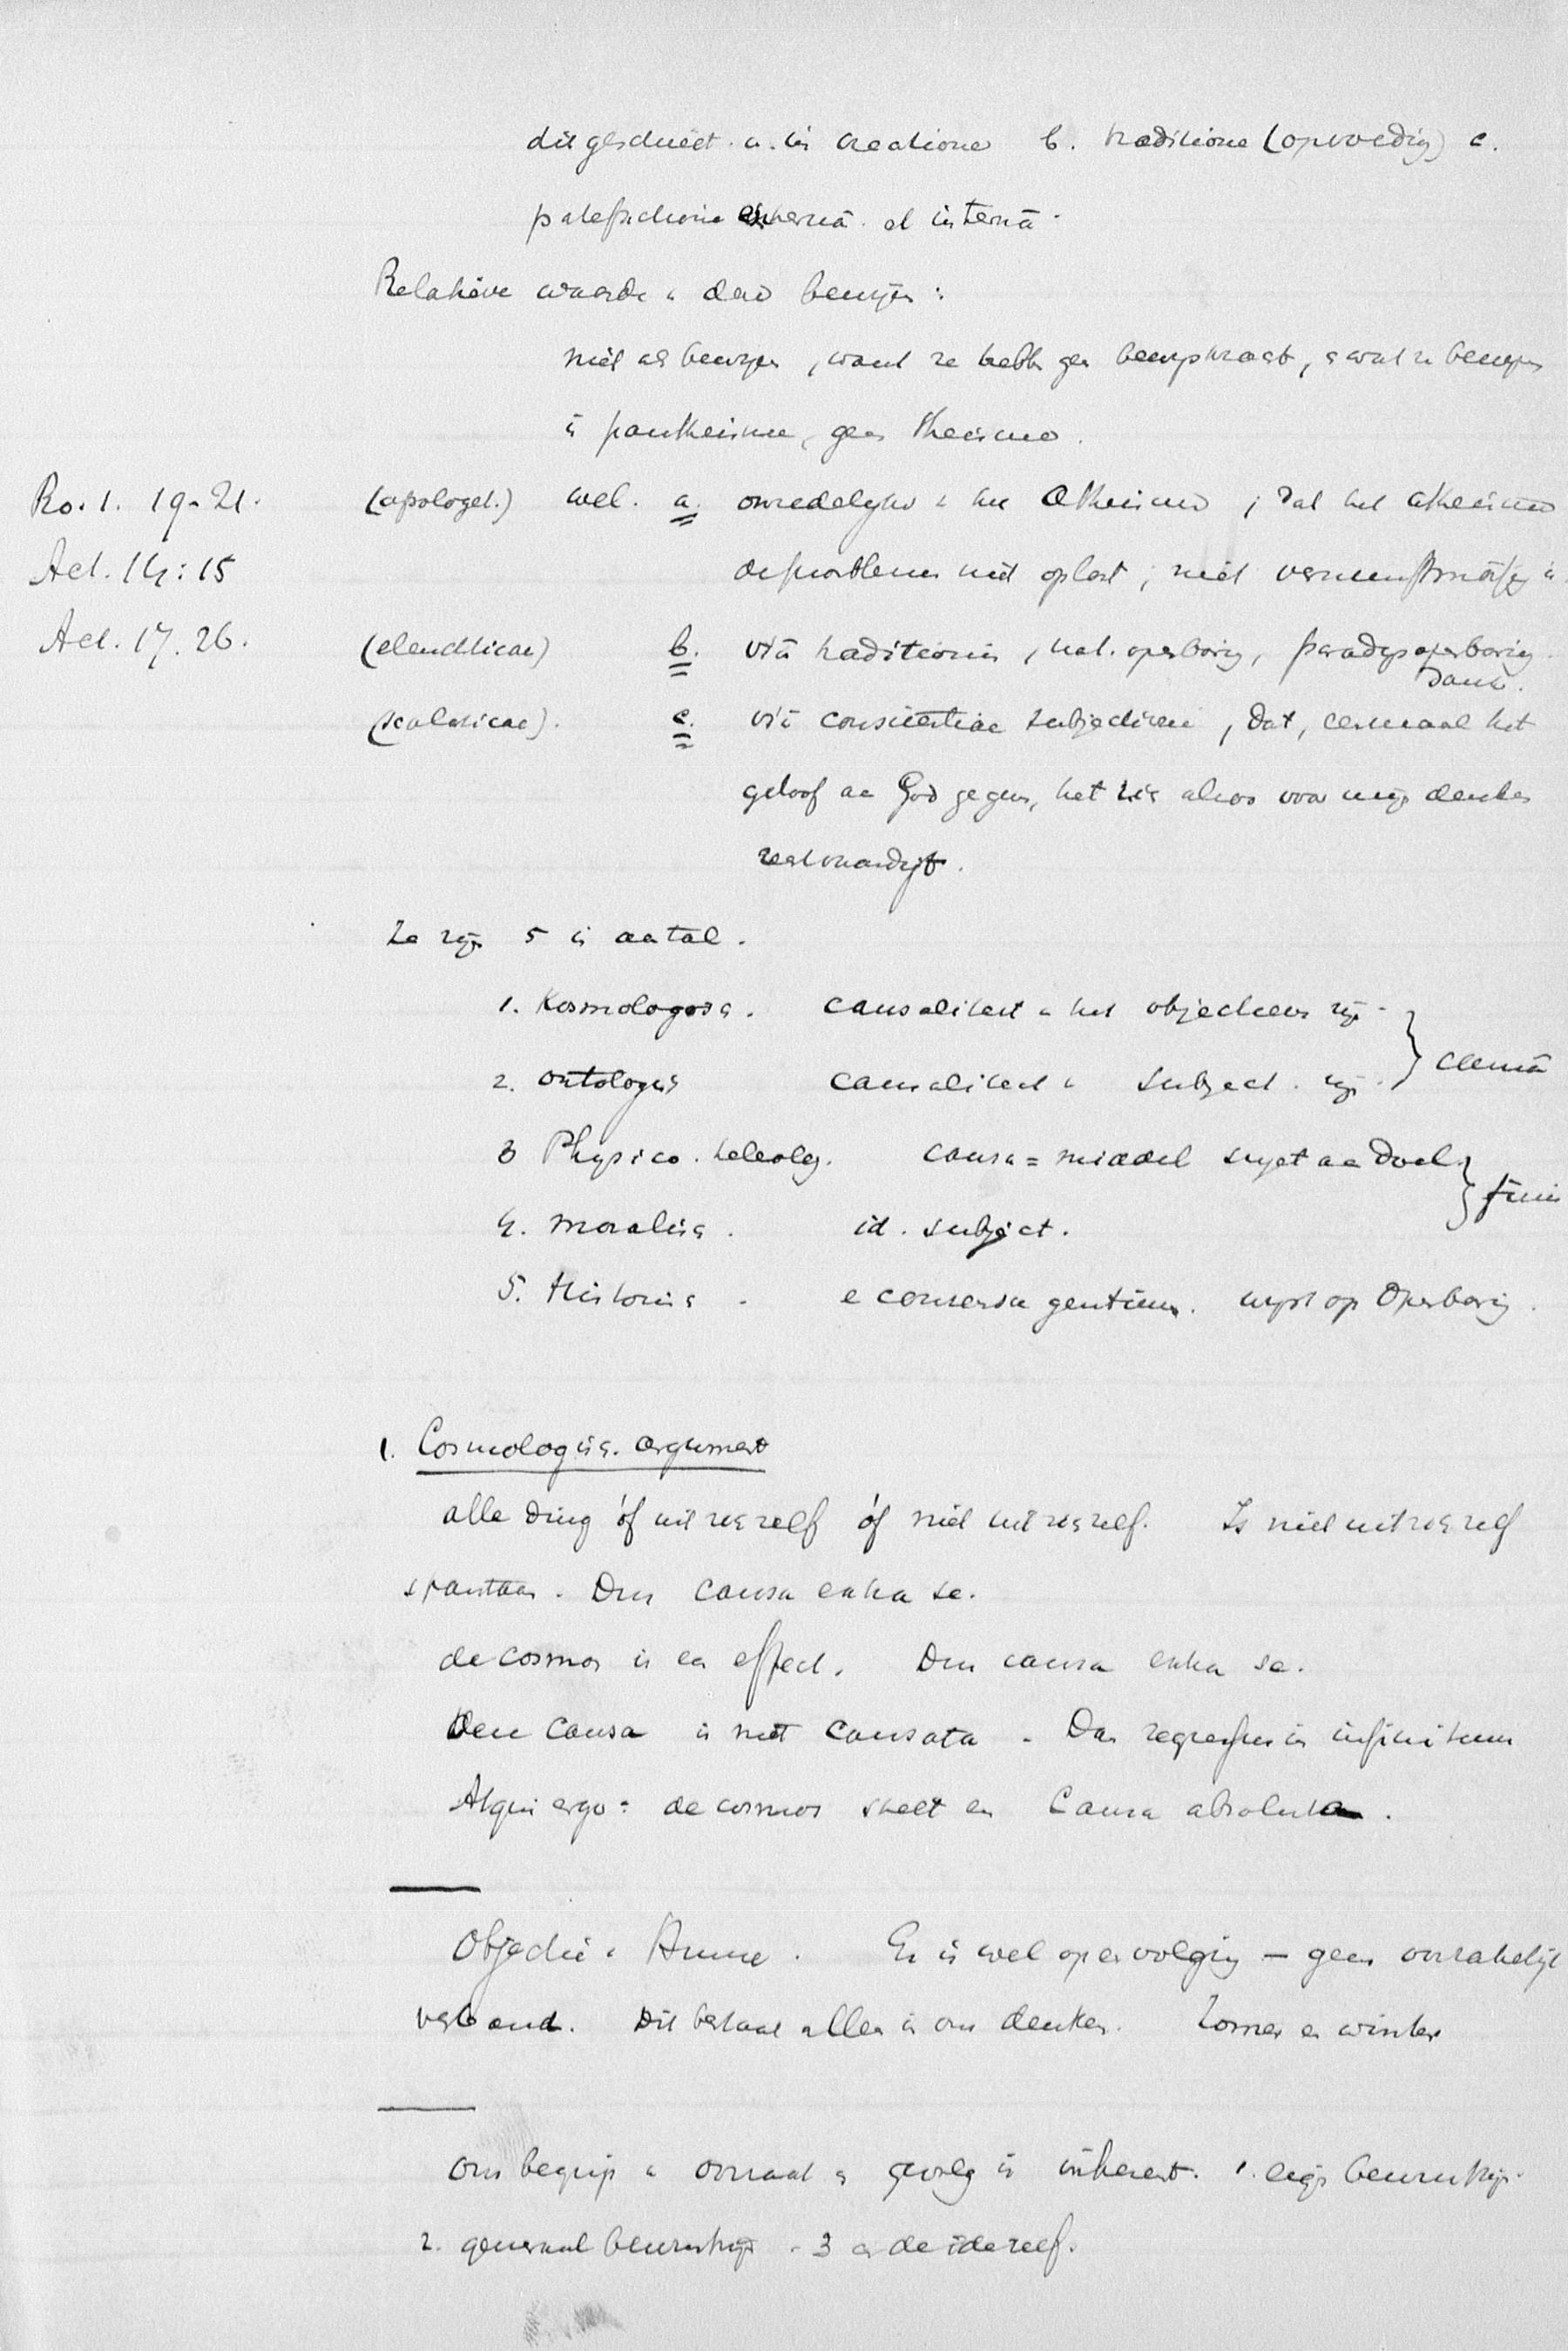 dit geschiedt. a. in creatione b. traditione (opvoedig) c.
patefactione externā. et internā.
Relatieve waarde v deze bewijzen:
niet als bewijzen, want ze hebb geen bewijskracht, & wat ze bewijzen
is pantheisme, geen theisme.
Ro. 1. 19-21. (apologet.) wel. a. onredelijkh v het Atheisme, dat het atheisme
Act. 14:15 de problemen niet oplost, niet vernunftmäszig is.
Act. 17. 26. (elenchticae) b. viā traditionis, nat. openbarig, paradijsopenbarig
(scolasticae). c. viā conscientiae subjectivae, dat, eenmaal het
geloof aan God gegeven, het zich alzoo voor mijn denken
rechtvaardigt.
Ze zijn 5 in aantal.
1. Kosmologisch. causaliteit v het objectieve zijn.
2. ontologisch causaliteit v subject. zijn.
3 Physico. teleolog. causa = middel subject aan doel. } finis
4. moralisch. id. subject.
5. Historisch. e consensu gentium. wijst op Openbarig.
1. Cosmologisch. argument
alle ding óf uit zichzelf óf niet uit zichzelf. Is niet uit zichzelf
spontaan. Dus causa extra se.
de cosmos is een effect. Dus causa extra se.
Deze causa is niet causata. Dan regressus in infinitum
Atqui ergo: de cosmos heeft een Causa absoluta.
Objectie v Hume. Er is wel opeenvolging — geen oorzakelijk
verband. Dit bestaat alleen in ons denken. Zomer en winter
Ons begrip v oorzaak & gevolg is inherent. 1. eigen bewustzijn.
2. generaal bewustzijn. 3 v de idee zelf.